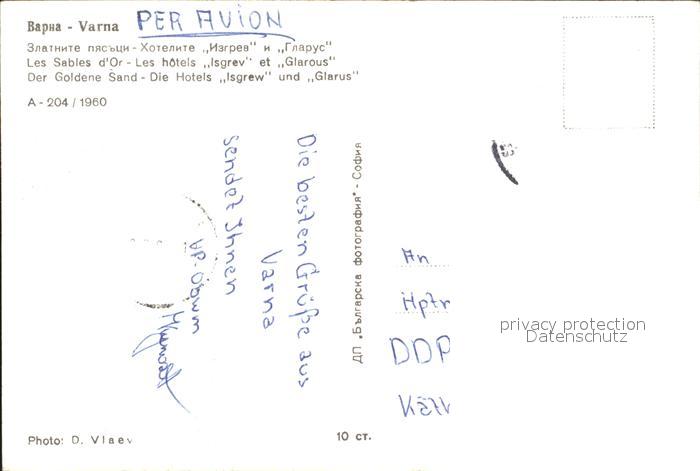 Варна - Varna PER AVION
Златните пясъци - Хотелите „Изгрев" и „Гларус"
Les Sables d'Or - Les hôtels „Isgrev" et „Glarous"
Der Goldene Sand - Die Hotels „Isgrew" und „Glarus"
A - 204 / 1960
Die besten Grüße aus
Varna
sendet Ihnen
ДП „Българска фотография" - София
An
DDP
privacy protection
Datenschutz
Photo: D. Vlaev
10 ст.